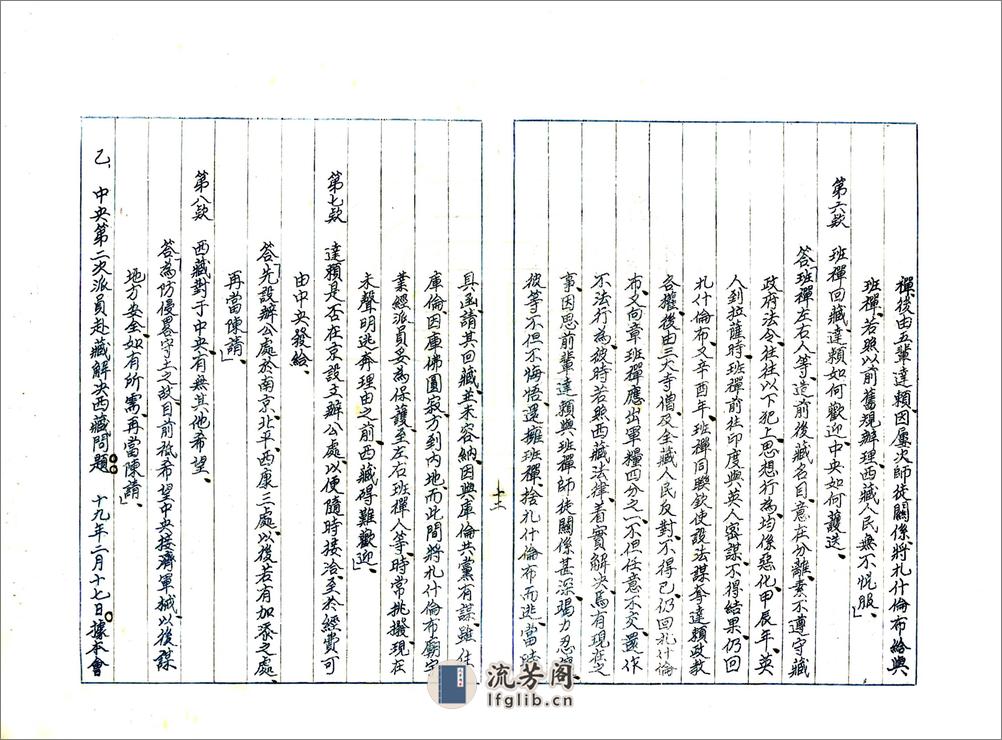 禪後由五輩達賴因屢次師徒關係將扎什倫布給與
班禪若照以前舊規辦理西藏人民無不悅服」
第六欵　班禪回藏達賴如何歡迎中央如何護送、
答「班禪左右人等造前後藏名目意在分離素不遵守藏
政府法令往往以下犯上思想行為均係惡化甲辰年英
人到拉薩時班禪前往印度與英人密謀不得結果仍回
扎什倫布又辛酉年班禪同聯欽使設法謀奪達賴政教
各權後由三大寺僧及全藏人民反對不得已仍回扎什倫
布又向章班禪應出軍糧四分之一不但任意不交還作
不法行為彼時若照西藏法律着實解決焉有現在之
事因思前輩達賴與班禪師徒關係甚深竭力忍
彼等不但不悔悟還擁班禪捨扎什倫布而逃當
十三
具函請其回藏並未容納因與庫倫共黨有謀雖住
庫倫因庫佛圓寂方到內地而此間將扎什倫布廟宇
業經派員妥為保護至左右班禪人等時常挑撥現在
未聲明逃奔理由之前西藏碍難歡迎」
第七欵　達賴是否在京設立辦公處以便隨時接洽至於經費可
由中央發給、
答「先設辦公處於南京北平西康三處以後若有加添之處、
再當陳請」
第八欵　西藏對于中央有無其他希望、
答「為防優畧守土之故目前祗希望中央接濟軍械以後謀
地方安全如有所需再當陳請」
乙、中央第二次派員赴藏解決西藏問題。十九年二月十七日據本會
流芳阁
lfglib.cn